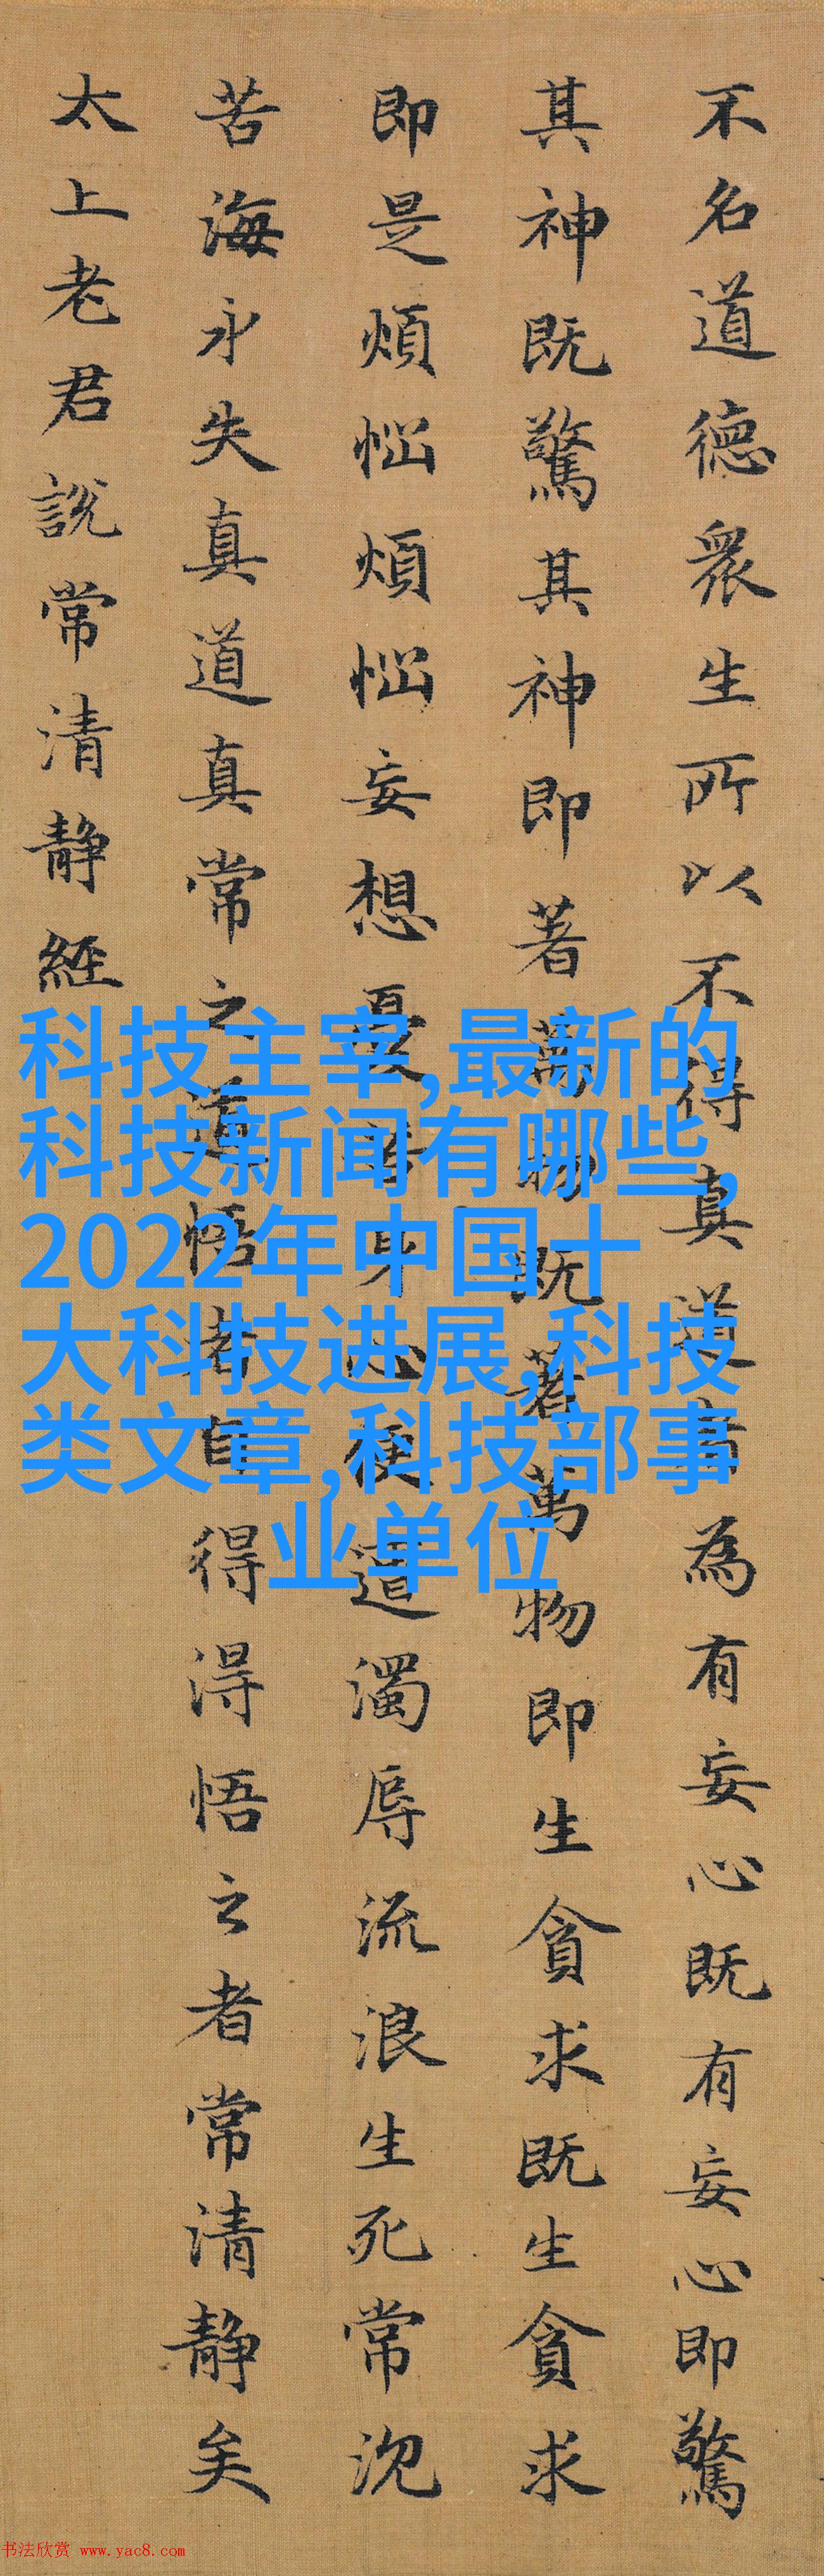 不名道德衆生所以不得真道者為有妄心既有妄心即驚
其神既驚其神即著萬物既著萬物即生貪求既生貪求
即是煩惱煩惱妄想憂苦身心便遭濁辱流浪生死常沉
苦海永失真道真常之道悟者自得得悟之者常清静矣
太上老君說常清静經
科技主宰,最新的
科技新闻有哪些,
2022年中国十
大科技进展,科技
类文章,科技部事
业单位
书法欣赏 www.yac8.com